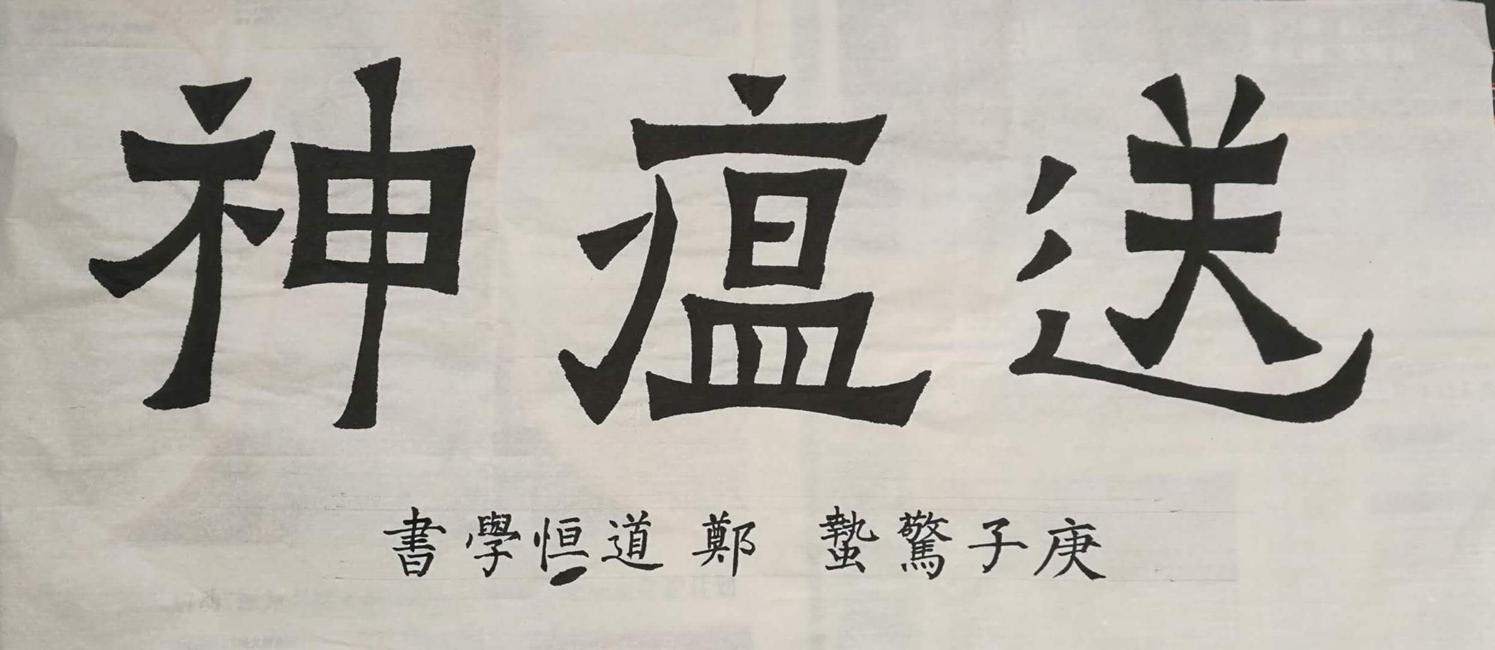 送瘟神
庚子驚蟄 鄭道恒學書